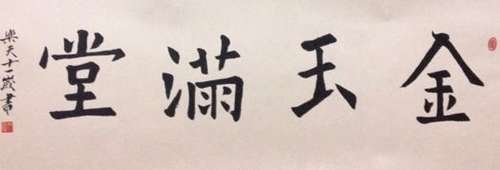 金玉滿堂
樂天十一歲書